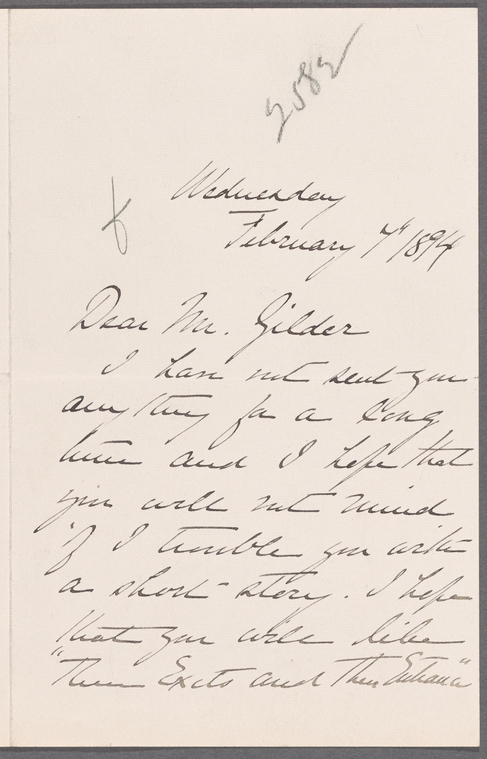 2582
Wednesday
February 7th 1894
Dear Mr. Gilder
I have not sent you
anything for a long
time and I hope that
you will not mind
if I trouble you with
a short story. I hope
that you will like
"Their Exits and Their Entrance"